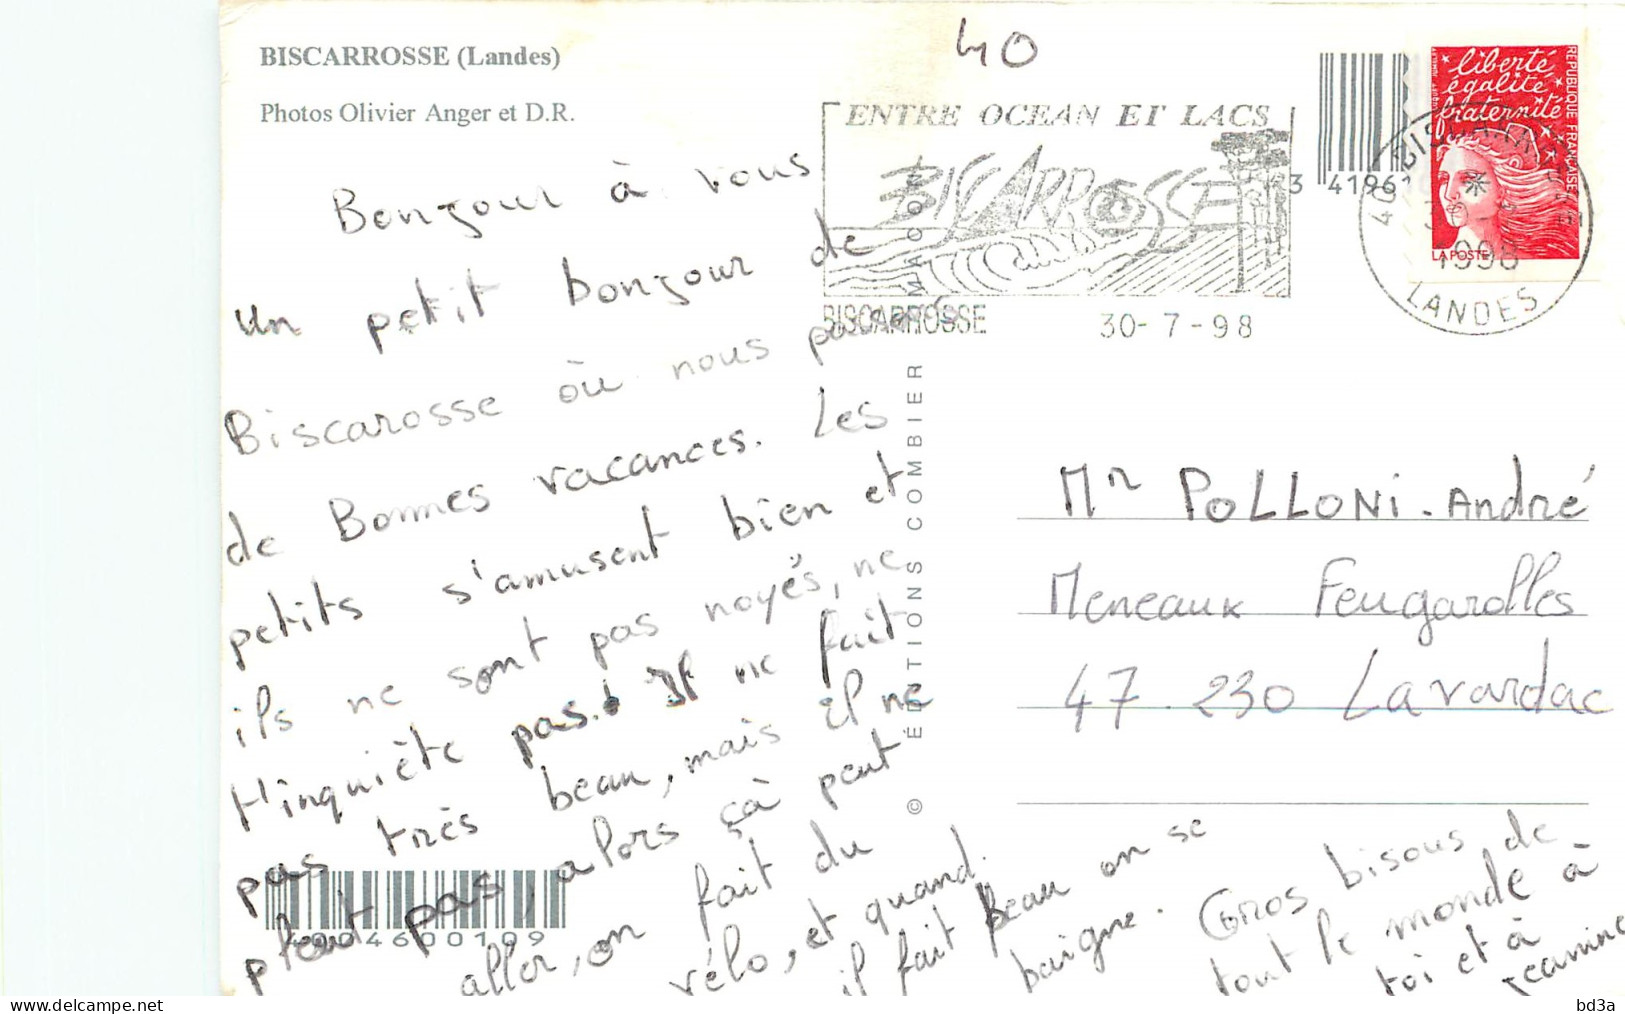 BISCARROSSE (Landes)
Photos Olivier Anger et D.R.
40
ENTRE OCEAN ET LACS
BISCARROSSE
BISCARROSSE
30-7-98
3 41961
liberté
égalité
fraternité
REPUBLIQUE FRANÇAISE
LA POSTE
40 BISCARROSSE
1998
LANDES
Bonjour à vous
un petit bonjour de
Biscarosse où nous passons
de Bonnes vacances. Les
petits s'amusent bien et
ils ne sont pas noyés, ne
t'inquiète pas. Il ne fait
pas très beau, mais il ne
pleut pas, alors çà peut
aller, on fait du
vélo, et quand
il fait Beau on se
baigne. Gros bisous de
tout le monde à
toi et à
Jeannine
© ÉDITIONS COMBIER MACON
4004600109
Mr POLLONi. André
Meneaux Feugarolles
47.230 Lavardac
bd3a